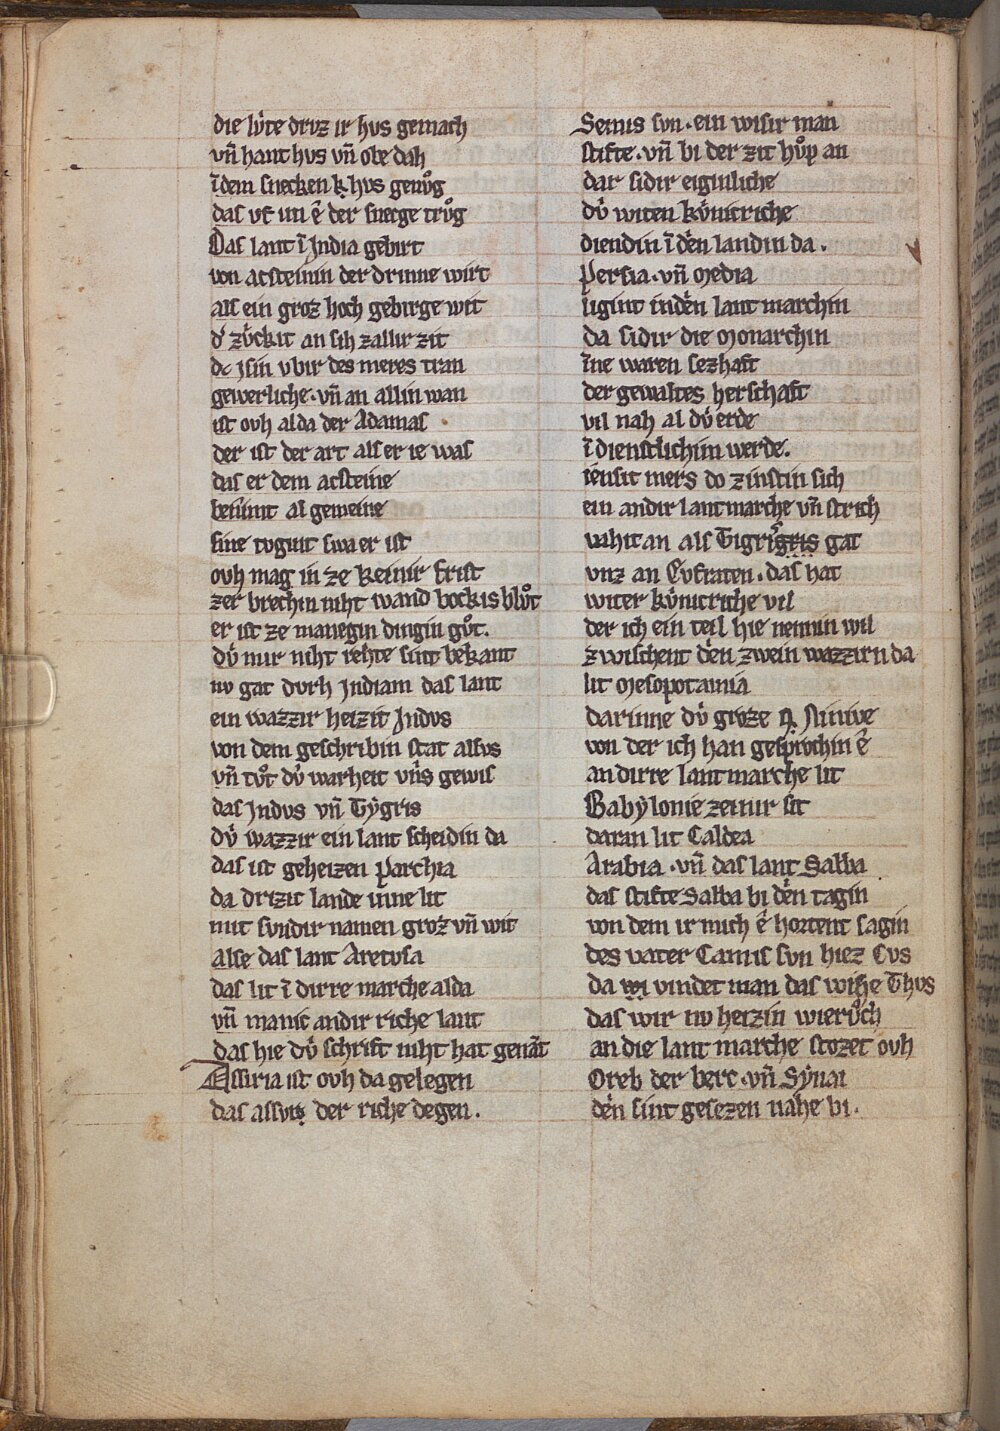 die lv̍te drvz ir hvs gemach
vn̄ hant hvs vn̄ obedah
ī dem snecken k hvs genv̊g
das vf im ê der snegge trv̊g
Das lant ī India gebirt
von acsteinin der drinne wirt
als ein groz hoch gebirge wit
d̕ zv̍ckit an sih zallir zit
dc Isin vbir des meres tran
gewerliche · vn̄ an allin wan
ist ovh alda der Adamas ·
der ist der art als er ie was
das er dem acsteine
benimit al gemeine
sine togint swa er ist
ovh mag in ze keinir frist
zer brechin niht wand bockis blv̊t
er ist ze manegin dingin gv̊t.
dv̍ mir niht rehte sint bekant
nv gat dvrh Indiam das lant
ein wazzir heizit Indvs
von dem geschribin stat alsvs
vn̄ tv̊t dv̍ warheit vns gewis
das Indvs vn̄ Tẏgris
dv̍ wazzir ein lant scheidin da
das ist geheizen Parthia
da drizic lande inne lit
mit svndir namen groz vn̄ wit
Alse das lant Aretvsa
das lit ī dirre marche alda
vn̄ manic andir riche lant
das hie dv̍ schrift niht hat genāt
Assiria ist ovh da gelegen
das assvr der riche degen.
Semis svn · ein wisir man
stifte · vn̄ bi der zit hv̊p an
dar sidir eiginliche
dv̍ witen kv̍nicriche
diendin ī den landin da .
Persia · vn̄ Media
ligint inden lant marchin
da sidir die Monarchin
īne waren sezhaft
der gewaltes herschaft
vil nah al dv̍ erde
ī dienstlichim werde.
iensit mers do zinstin sich
ein andir lantmarche vn̄ strich
vahit an als Tigrigris gat
vnz an Evfraten . das hat
witer kv̍nicriche vil
der ich ein teil hie nennin wil
zwischent den zwein wazzirn da
lit Mesopotamia
darinne dv̍ groze Ninive
von der ich han gesprochin ê
an dirre lantmarche lit
Babẏlonie zeinir sit
daran lit Caldea
Arabia · vn̄ das lant Salba
das stifte Salba bi den tagin
von dem ir mich ê hortent sagin
des vater Camis svn hiez Cvs
da vindet man das wihe Thvs
das wir nv heizin wierv̊ch
an die lant marche stozet ovh
Oreb der berc · vn̄ Sẏnai
den sint gesezen nahe bi ·